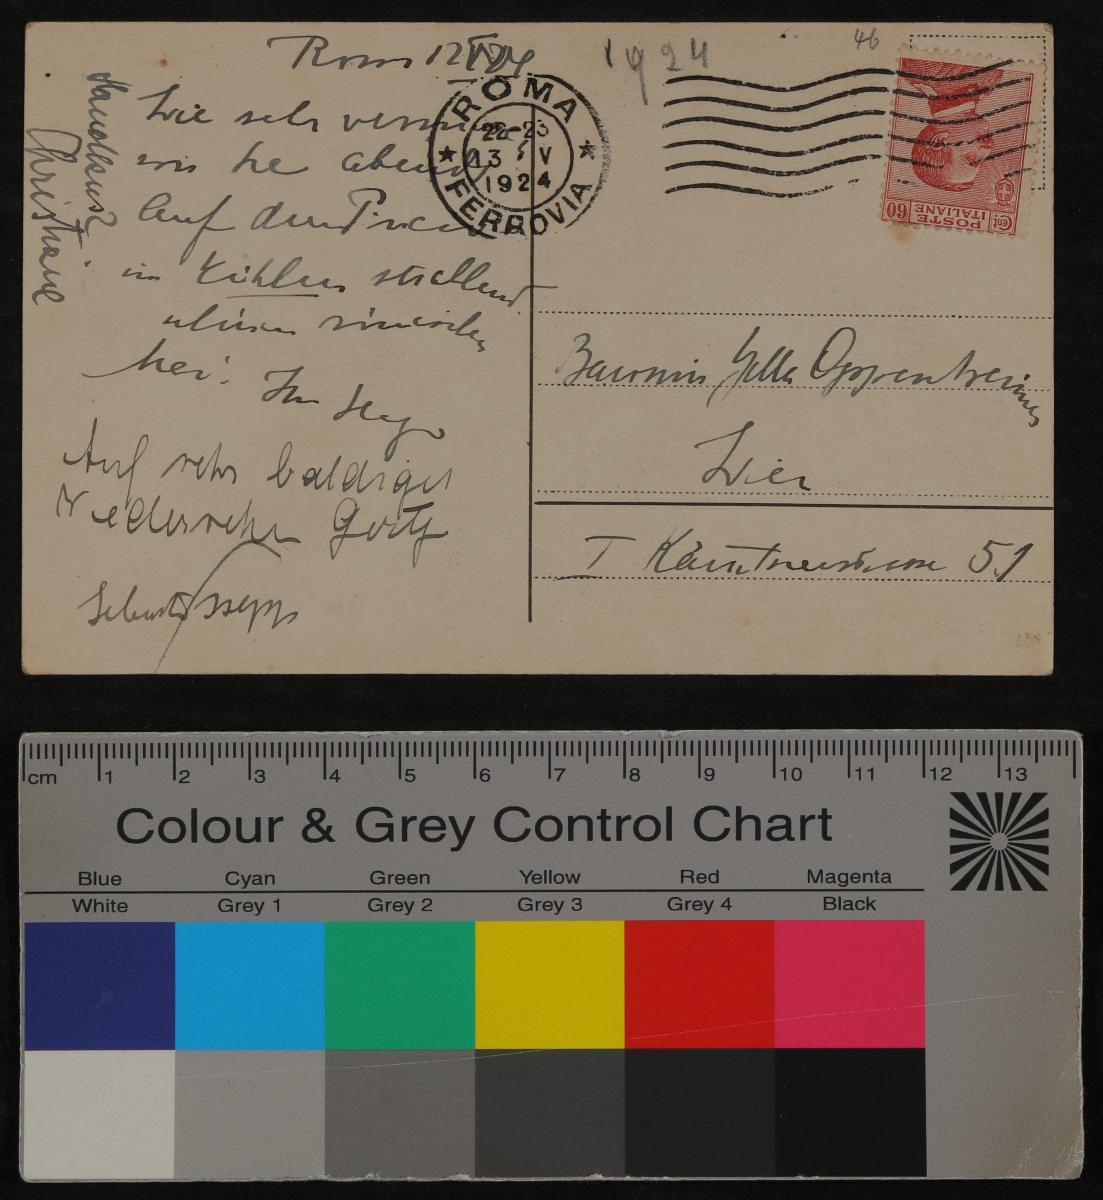 Rom 12 V 24
Wie sehr vermis
wir Sie abends
auf dem Pincio
im Kühlen strahlend
hei!
Ihr Hugo
Auf sehr baldiges
Wiedersehen Goetz
Handkuss
Christiane
1924
46
ROMA
22-23
13 V
1924
FERROVIA
POSTE
ITALIANE
Cent
60
Baronin Yella Oppenheimer
Wien
I Kärntnerstrasse 51
cm 1 2 3 4 5 6 7 8 9 10 11 12 13
Colour & Grey Control Chart
Blue Cyan Green Yellow Red Magenta
White Grey 1 Grey 2 Grey 3 Grey 4 Black